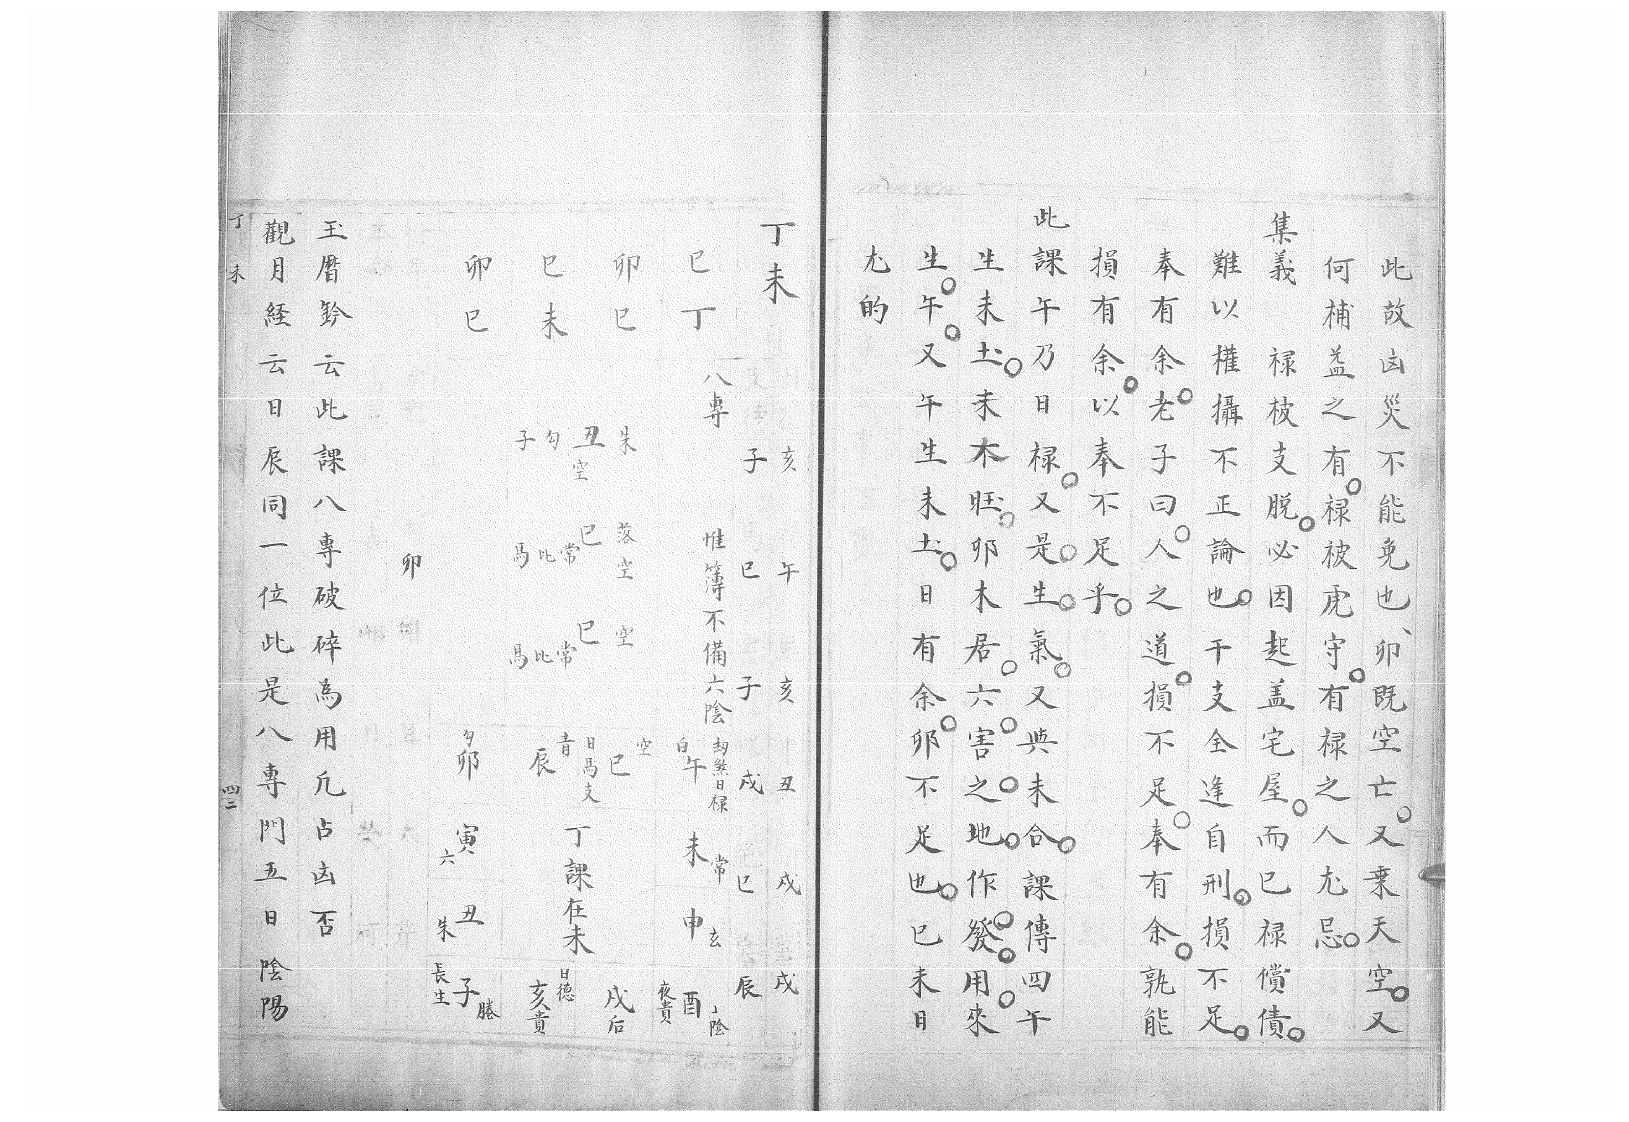 此故凶災不能免也、卯既空亡又乗天空又
何補益之有禄被虎守有禄之人尤忌
集義　禄被支脱必因起盖宅屋而已禄償債
難以權攝不正論也干支全逢自刑損不足
奉有余老子曰人之道損不足奉有余孰能
損有余以奉不足乎
此課午乃日禄又是生氣又與未合課傳四午
生未土未木旺卯木居六害之地作發用來
生午又午生未土日有余卯不足也巳未日
尤的
丁未
巳丁
卯巳
巳未
卯巳
八專
惟簿不備六陰
亥午亥丑戌戌
子巳子戌巳辰
朱丑空勾子
落空巳常比馬
空巳常比馬
劫煞日禄午白
未常
申玄
酉夜貴陰
空巳日馬支
辰青
卯勾
寅六
丑朱
子螣長生
亥貴日德
戌后
丁課在未
卯
玉曆鈐云此課八專破碎為用凡占凶否
觀月経云日辰同一位此是八專門五日陰陽
丁未
四二